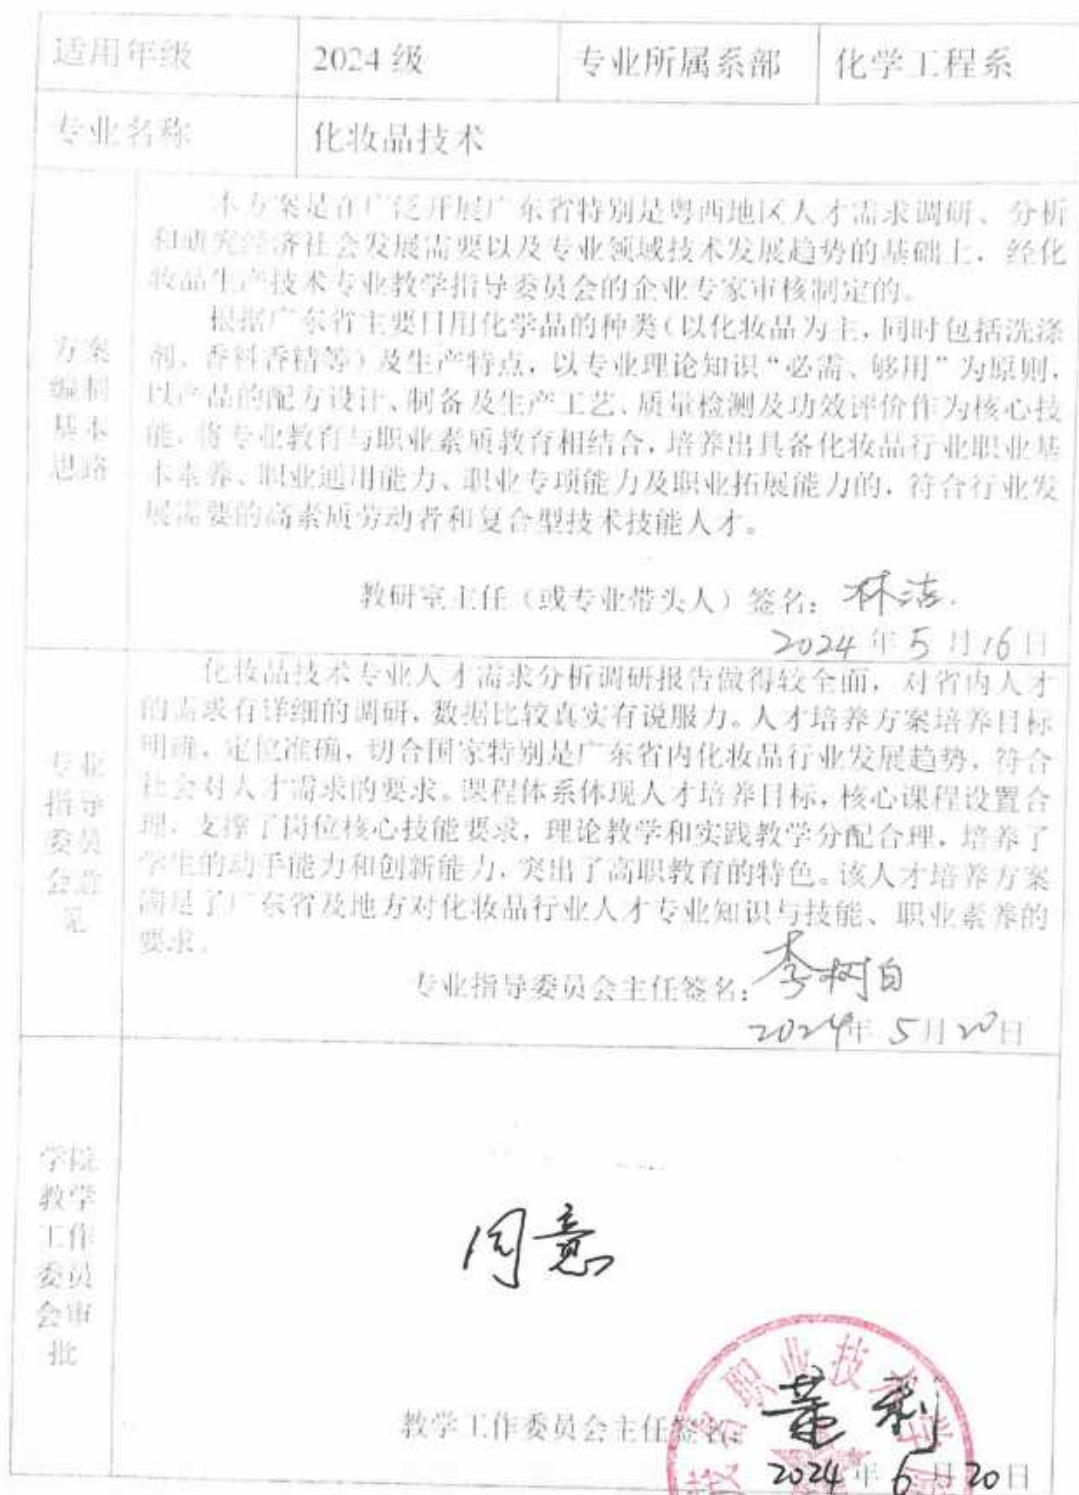 适用年级 2024 级 专业所属系部 化学工程系
专业名称 化妆品技术
方案
编制
基本
思路
本方案是在广泛开展广东省特别是粤西地区人才需求调研、分析
和研究经济社会发展需要以及专业领域技术发展趋势的基础上，经化
妆品生产技术专业教学指导委员会的企业专家审核制定的。
根据广东省主要日用化学品的种类（以化妆品为主，同时包括洗涤
剂、香料香精等）及生产特点，以专业理论知识“必需、够用”为原则，
以产品的配方设计、制备及生产工艺、质量检测及功效评价作为核心技
能，将专业教育与职业素质教育相结合，培养出具备化妆品行业职业基
本素养、职业通用能力、职业专项能力及职业拓展能力的，符合行业发
展需要的高素质劳动者和复合型技术技能人才。
教研室主任（或专业带头人）签名：林洁
2024 年 5 月 16 日
专业
指导
委员
会意
见
化妆品技术专业人才需求分析调研报告做得较全面，对省内人才
的需求有详细的调研，数据比较真实有说服力。人才培养方案培养目标
明确，定位准确，切合国家特别是广东省内化妆品行业发展趋势，符合
社会对人才需求的要求。课程体系体现人才培养目标，核心课程设置合
理，支撑了岗位核心技能要求，理论教学和实践教学分配合理，培养了
学生的动手能力和创新能力，突出了高职教育的特色。该人才培养方案
满足了广东省及地方对化妆品行业人才专业知识与技能、职业素养的
要求。
专业指导委员会主任签名：李树白
2024年 5月20日
学院
教学
工作
委员
会审
批
同意
职业技
教学工作委员会主任签名：
2024 年 6 月 20 日